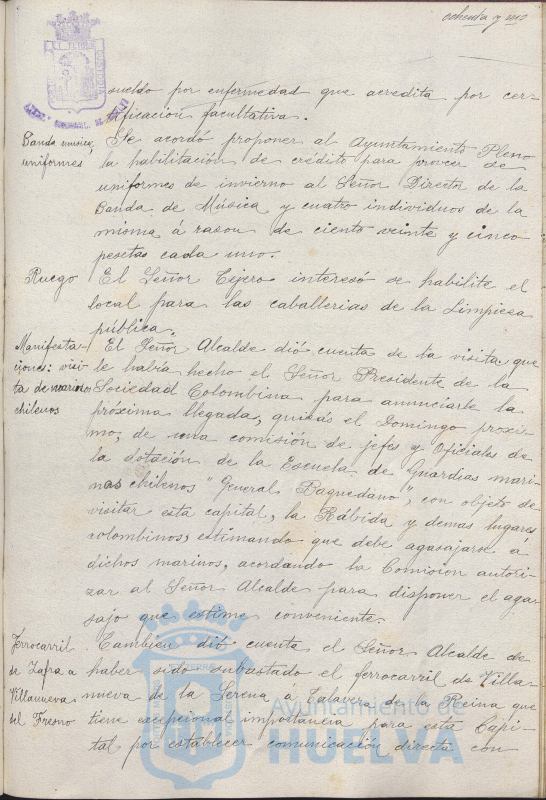 ochenta y uno
sueldo por enfermedad que acredita por cer-
tificación facultativa.
Banda musica, uniformes
Se acordó proponer al Ayuntamiento Pleno
la habilitacion de credito para proveer de
uniformes de invierno al Señor Director de la
Banda de Música y cuatro individuos de la
misma á razon de ciento veinte y cinco
pesetas cada uno.
Ruego
El Señor Tejero interesó se habilite el
local para las caballerias de la Limpieza
pública.
Manifesta-
ciones: visi-
ta de marinos
chilenos
El Señor Alcalde dió cuenta de la visita que
le habia hecho el Señor Presidente de la
Sociedad Colombina para anunciarle la
próxima llegada, quizás el Domingo proxi-
mo, de una comisión de jefes y Oficiales de
la dotación de la Escuela de Guardias mari-
nas chilenos "General Baquedano", con objeto de
visitar esta capital, la Rábida y demas lugares
colombinos, estimando que debe agasajarse á
dichos marinos, acordando la Comision autori-
zar al Señor Alcalde para disponer el aga-
sajo que estime conveniente.
Ferrocarril
de Zafra a
Villanueva
del Fresno
Tambien dió cuenta el Señor Alcalde de
haber sido subastado el ferrocarril de Villa-
nueva de la Serena a Talavera de la Reina que
tiene excepcional importancia para esta Capi-
tal por establecer comunicación directa con
Ayuntamiento de
HUELVA